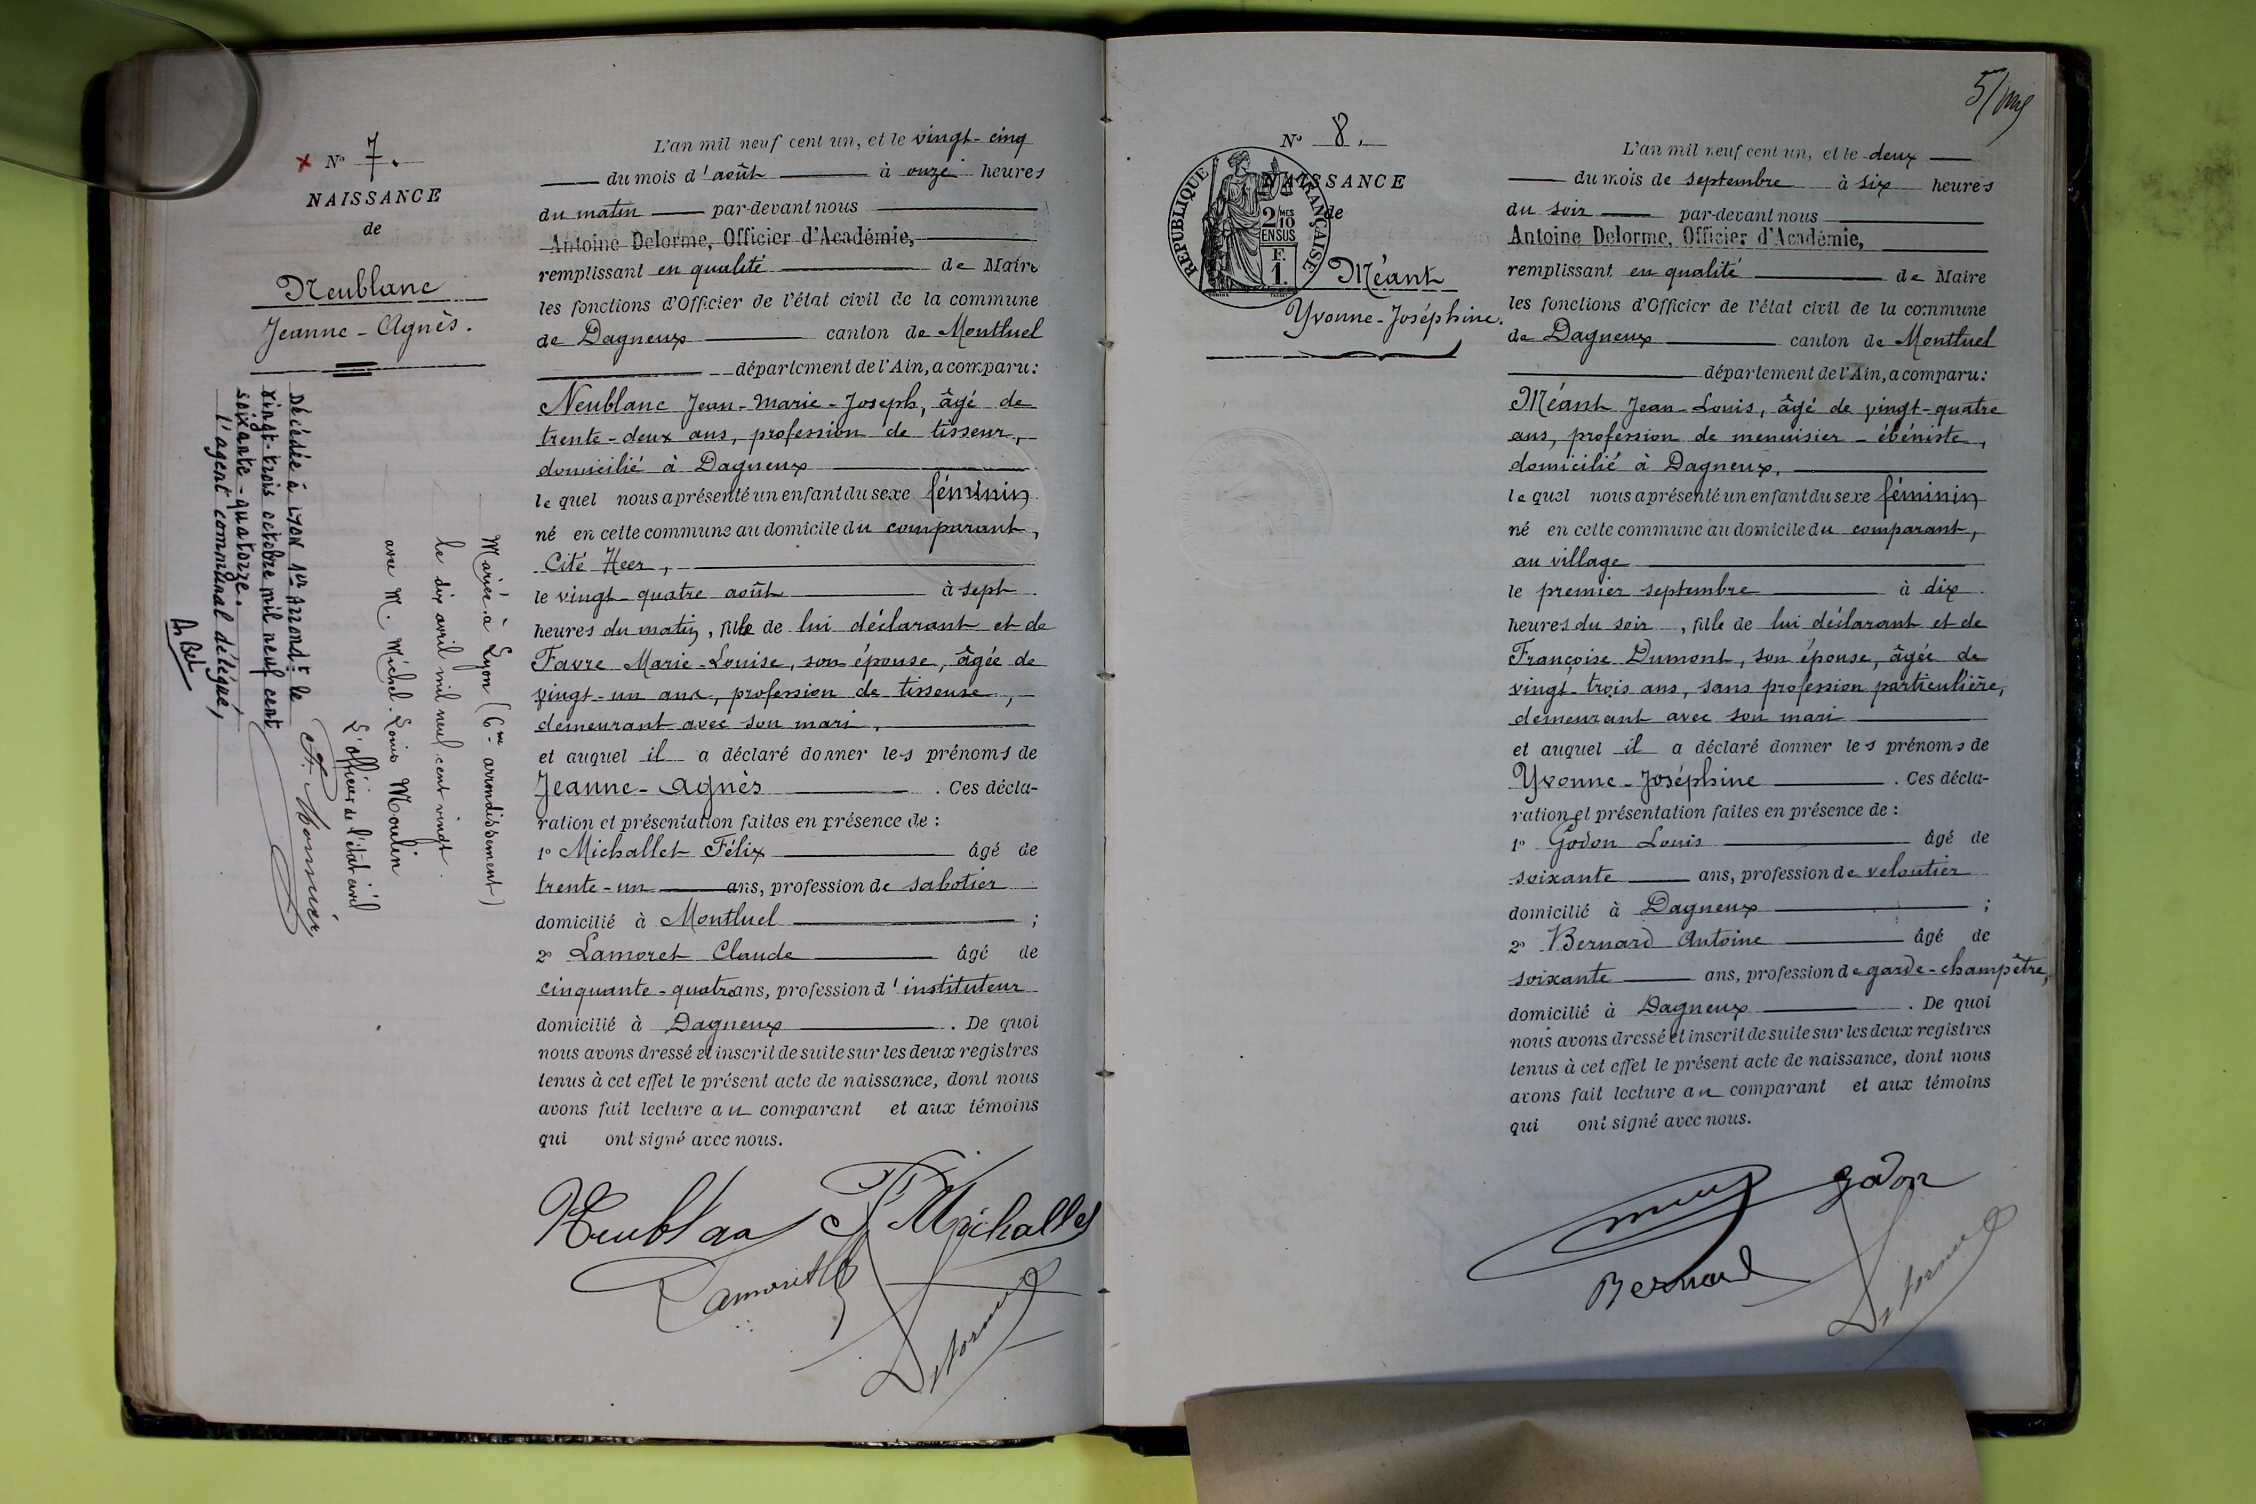 N° 7.
NAISSANCE
de
Neublanc
Jeanne-Agnès.
Mariée à Lyon (6me arrondissement)
le dix avril mil neuf cent vingt.
avec M. Michel-Louis Moulin
L'officier de l'état civil
Décédée à LYON 1er Arrondt le
vingt-trois octobre mil neuf cent
soixante-quatorze.
l'agent communal délégué,
L'an mil neuf cent un, et le vingt-cinq
du mois d'août à onze heures
du matin par-devant nous
Antoine Delorme, Officier d'Académie,
remplissant en qualité de Maire
les fonctions d'Officier de l'état civil de la commune
de Dagneux canton de Montluel
département de l'Ain, a comparu:
Neublanc Jean-Marie-Joseph, âgé de
trente-deux ans, profession de tisseur,
domicilié à Dagneux
lequel nous a présenté un enfant du sexe féminin
né en cette commune au domicile du comparant,
Cité Heer,
le vingt-quatre août à sept
heures du matin, fille de lui déclarant et de
Favre Marie-Louise, son épouse, âgée de
vingt-un ans, profession de tisseuse,
demeurant avec son mari,
et auquel il a déclaré donner les prénoms de
Jeanne-Agnès. Ces décla-
ration et présentation faites en présence de :
1° Michallet Félix âgé de
trente-un ans, profession de sabotier
domicilié à Montluel ;
2° Lamoret Claude âgé de
cinquante-quatre ans, profession d'instituteur
domicilié à Dagneux. De quoi
nous avons dressé et inscrit de suite sur les deux registres
tenus à cet effet le présent acte de naissance, dont nous
avons fait lecture au comparant et aux témoins
qui ont signé avec nous.
Neublanc F. Michallet
Lamoret
Delorme
5/
N° 8.
NAISSANCE
de
RÉPUBLIQUE FRANÇAISE
2/10 MES
EN SUS
F.
1.
Méant
Yvonne-Joséphine.
L'an mil neuf cent un, et le deux
du mois de septembre à six heures
du soir par-devant nous
Antoine Delorme, Officier d'Académie,
remplissant en qualité de Maire
les fonctions d'Officier de l'état civil de la commune
de Dagneux canton de Montluel
département de l'Ain, a comparu:
Méant Jean-Louis, âgé de vingt-quatre
ans, profession de menuisier-ébéniste,
domicilié à Dagneux,
lequel nous a présenté un enfant du sexe féminin
né en cette commune au domicile du comparant,
au village
le premier septembre à dix
heures du soir, fille de lui déclarant et de
Françoise Dumont, son épouse, âgée de
vingt-trois ans, sans profession particulière,
demeurant avec son mari
et auquel il a déclaré donner les prénoms de
Yvonne-Joséphine. Ces décla-
ration et présentation faites en présence de :
1° Godon Louis âgé de
soixante ans, profession de veloutier
domicilié à Dagneux ;
2° Bernard Antoine âgé de
soixante ans, profession de garde-champêtre,
domicilié à Dagneux. De quoi
nous avons dressé et inscrit de suite sur les deux registres
tenus à cet effet le présent acte de naissance, dont nous
avons fait lecture au comparant et aux témoins
qui ont signé avec nous.
Godon
Bernard
Delorme